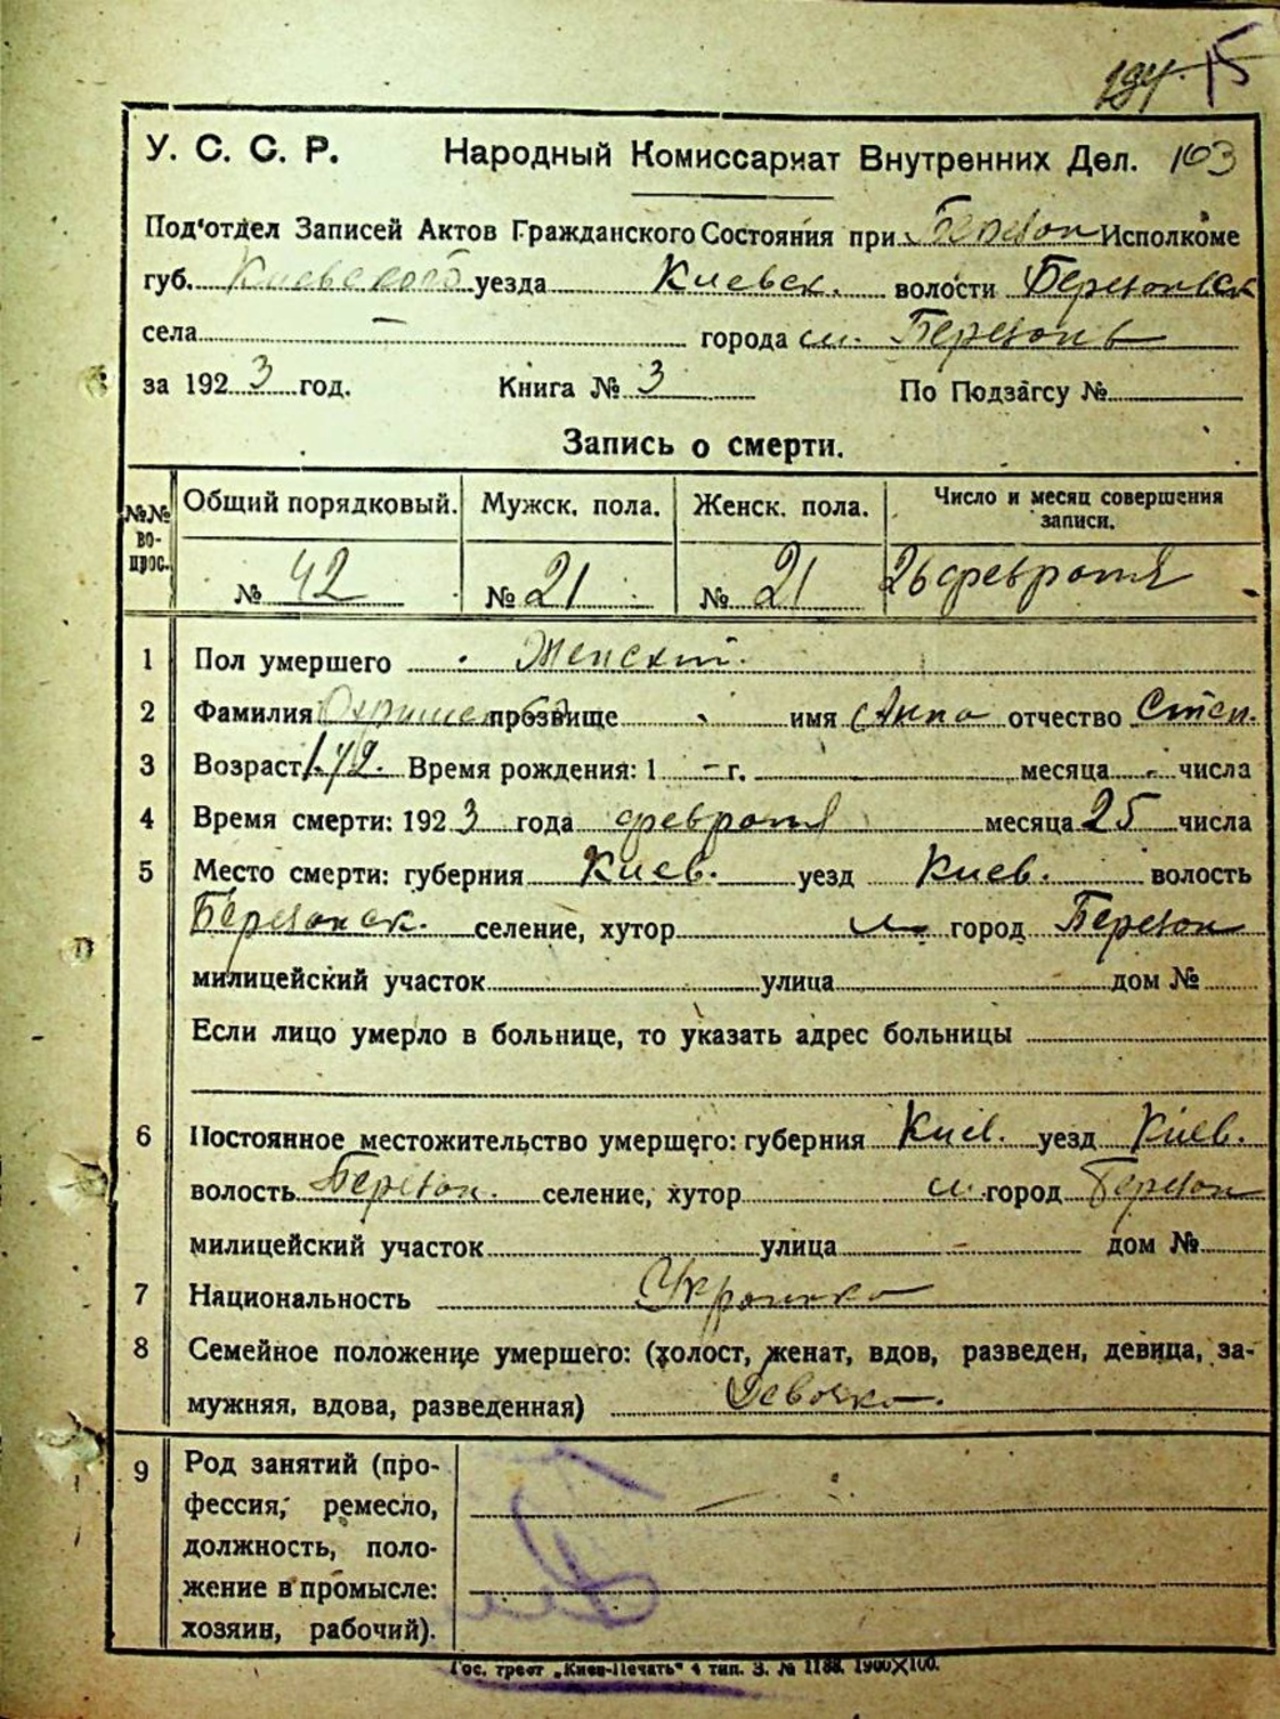 15
У. С. С. Р. Народный Комиссариат Внутренних Дел. 103
Под'отдел Записей Актов Гражданского Состояния при Березан Исполкоме
губ. Киевского уезда Киевск. волости Березанск
села — города м. Березань
за 1923 год. Книга № 3 По Подзагсу №
Запись о смерти.
№№ во-прос. Общий порядковый. Мужск. пола. Женск. пола. Число и месяц совершения записи.
№ 42 № 21 № 21 26 февраля
1 Пол умершего Женский.
2 Фамилия прозвище имя Анна отчество Степ.
3 Возраст Время рождения: 1 - г. месяца - числа
4 Время смерти: 1923 года февраля месяца 25 числа
5 Место смерти: губерния Киев. уезд Киев. волость
Березанск. селение, хутор м. город Березан
милицейский участок улица дом №
Если лицо умерло в больнице, то указать адрес больницы
6 Постоянное местожительство умершего: губерния Киев. уезд Киев.
волость Березан. селение, хутор м. город Березан
милицейский участок улица - дом №
7 Национальность Украинка
8 Семейное положение умершего: (холост, женат, вдов, разведен, девица, за-
мужняя, вдова, разведенная) Девочка.
9 Род занятий (про-
фессия, ремесло, —
должность, поло-
жение в промысле:
хозяин, рабочий).
Гос. трест „Киев-Печать" 4 тип. З. № 1188. 1900X100.